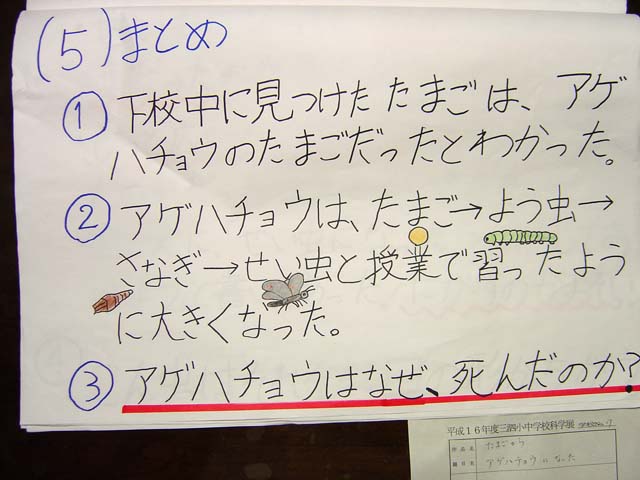 (5)まとめ
① 下校中に見つけたたまごは、アゲ
ハチョウのたまごだったとわかった。
② アゲハチョウは、たまご→よう虫→
さなぎ→せい虫と授業で習ったよう
に大きくなった。
③ アゲハチョウはなぜ、死んだのか?
平成16年度三泗小中学校科学展
作品名 たまごから
題目名 アゲハチョウになった